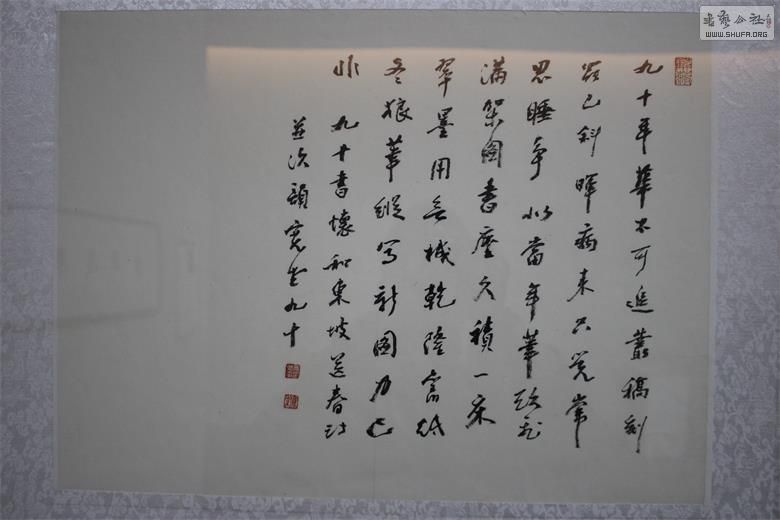 九十年華不可追叢稿刻
已斜暉病來只覺常
思睡爭似當年筆飛
滿架圖書塵久積一床
翠墨用無機乾隆舊紙
冬狼筆縱寫新圖力已
非 九十書懷和東坡送春詩
並次韻寬堂九十
書藝公社
WWW.SHUFA.ORG